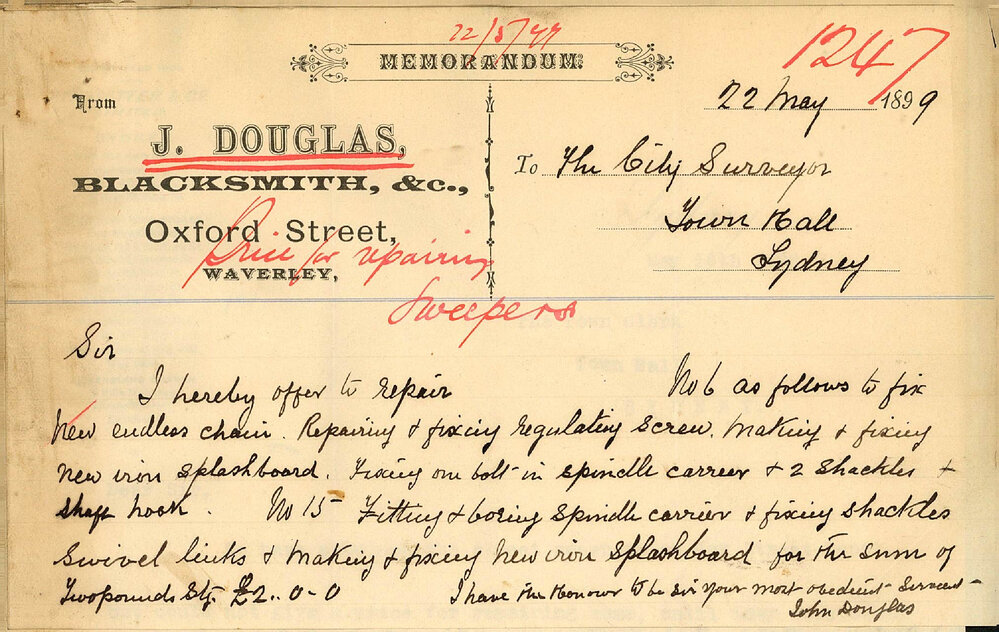 22/5/99
MEMORANDUM.
1247
22 May 1899
From
J. DOUGLAS,
BLACKSMITH, &c.,
Oxford Street,
WAVERLEY,
Price for repairing
Sweepers
To The City Surveyor
Town Hall
Sydney
Sir
I hereby offer to repair No 6 as follows to fix
New endless chain. Repairing & fixing regulating screw. Making & fixing
New iron splashboard. Fixing one bolt in spindle carrier & 2 shackles &
shaft hook. No 15 Fitting & boring spindle carrier & fixing shackles
swivel links & making & fixing new iron splashboard for the sum of
Two pounds Stg £2-0-0 I have the Honour to be Sir Your most obedient Servant
John Douglas